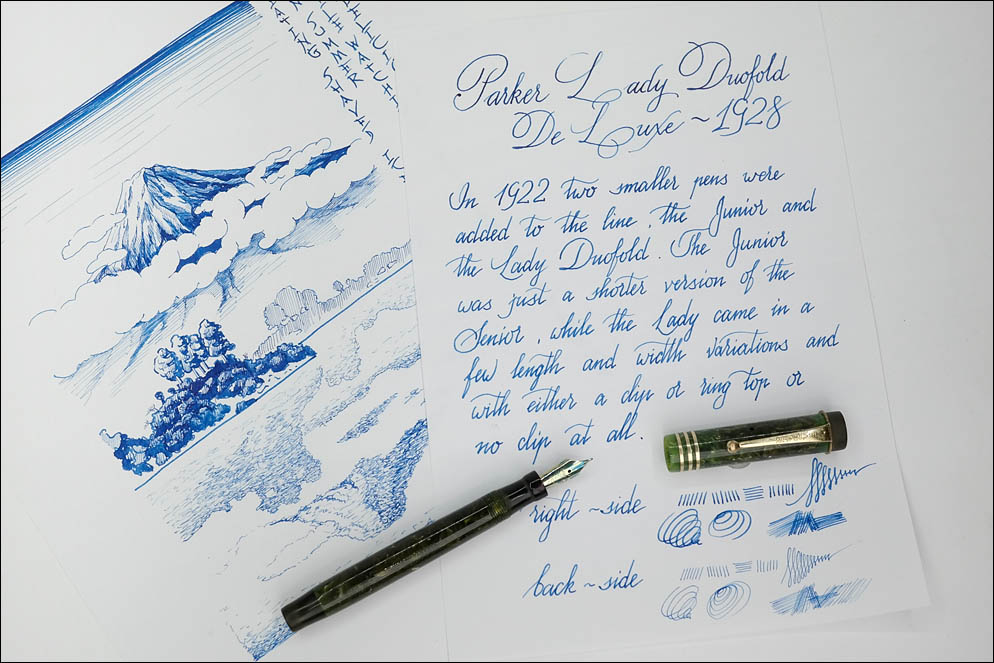 SUMMER
Parker Lady Duofold
De Luxe ~ 1928
In 1922 two smaller pens were
added to the line, the Junior and
the Lady Duofold. The Junior
was just a shorter version of the
Senior, while the Lady came in a
few length and width variations and
with either a clip or ring top or
no clip at all.
right ~ side
back ~ side